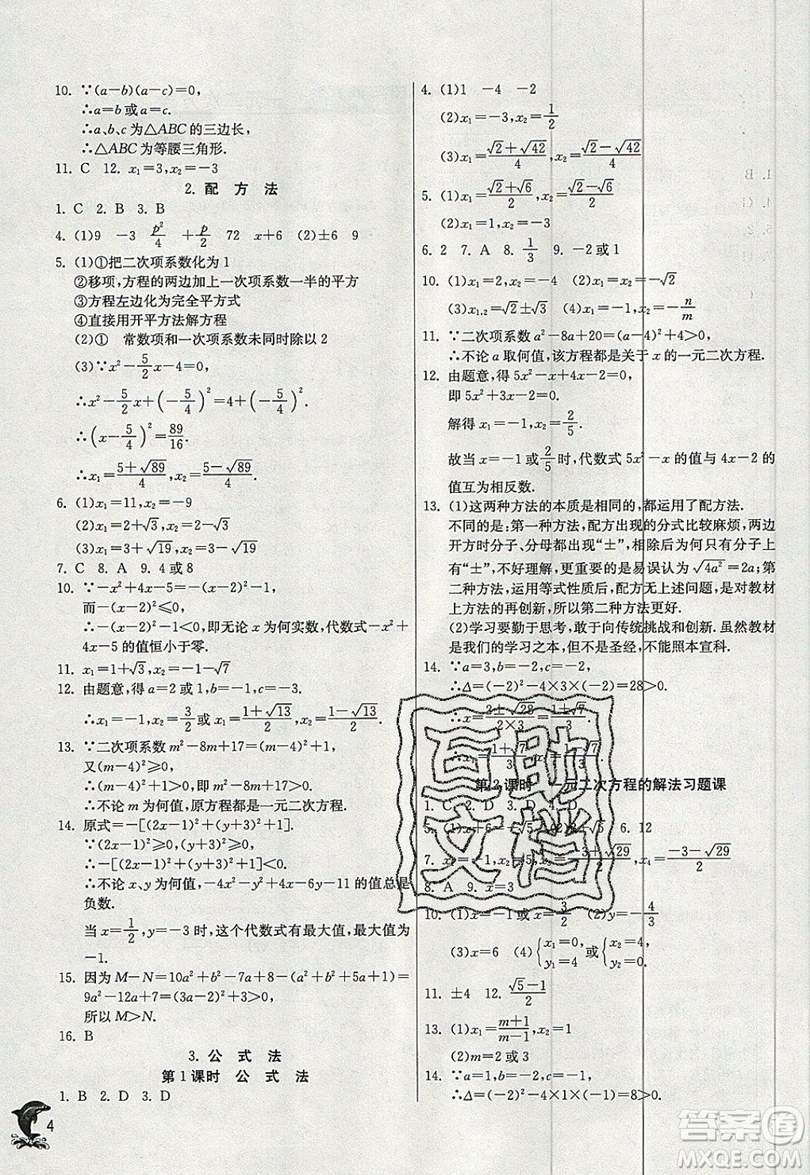 10. ∵(a-b)(a-c)=0,
∴a=b 或 a=c.
∵a、b、c 为△ABC 的三边长,
∴△ABC 为等腰三角形.
11. C 12. x₁=3,x₂=-3
2. 配 方 法
1. C 2. B 3. B
4. (1)9 -3 p²/4 +p/2 72 x+6 (2)±6 9
5. (1)①把二次项系数化为 1
②移项,方程的两边加上一次项系数一半的平方
③方程左边化为完全平方式
④直接用开平方法解方程
(2)① 常数项和一次项系数未同时除以 2
(3)∵x²-5/2x-4=0,
∴x²-5/2x+(-5/4)²=4+(-5/4)².
∴(x-5/4)²=89/16.
∴x₁=(5+√89)/4,x₂=(5-√89)/4.
6. (1)x₁=11,x₂=-9
(2)x₁=2+√3,x₂=2-√3
(3)x₁=3+√19,x₂=3-√19
7. C 8. A 9. 4 或 8
10. ∵-x²+4x-5=-(x-2)²-1,
而-(x-2)²≤0,
∴-(x-2)²-1<0,即无论 x 为何实数,代数式-x²+
4x-5 的值恒小于零.
11. x₁=1+√3,x₂=1-√7
12. 由题意,得 a=2,b=-1,c=-3.
∴x₁=-1,x₂=3/2 或 x₁=(1+√13)/2,x₂=(1-√13)/2.
13. ∵二次项系数 m²-8m+17=(m-4)²+1,
又(m-4)²≥0,
∴(m-4)²+1>0.
∴不论 m 为何值,原方程都是一元二次方程.
14. 原式=-[(2x-1)²+(y+3)²+1].
∵(2x-1)²≥0,(y+3)²≥0,
∴-[(2x-1)²+(y+3)²+1]<0.
∴不论 x、y 为何值,-4x²-y²+4x-6y-11 的值总是
负数.
当 x=1/2,y=-3 时,这个代数式有最大值,最大值为
-1.
15. 因为 M-N=10a²+b²-12a+8-(a²+b²+5a+1)=
9a²-12a+7=(3a-2)²+3>0,
所以 M>N.
16. B
3. 公 式 法
第 1 课时 公 式 法
1. B 2. D 3. D
4
4. (1)1 -4 -2
(2)x₁=-3,x₂=1/2
(3)x₁=(√2+√42)/4,x₂=(√2-√42)/4
5. (1)x₁=(√2+√6)/2,x₂=(√2-√6)/2
(2)x₁=-3,x₂=1
6. 2 7. A 8. 1/3 9. -2 或 1
10. (1)x₁=1,x₂=3 (2)x₁=0,x₂=-√2
(3)x₁.₂=√2±√3 (4)x₁=0,x₂=-n/m
11. ∵二次项系数 a²-8a+20=(a-4)²+4>0,
∴不论 a 取何值,该方程都是关于 x 的一元二次方程.
12. 由题意,得 5x²-x+4x-2=0,
即 5x²+3x-2=0.
解得 x₁=-1,x₂=2/5.
故当 x=-1 或 2/5 时,代数式 5x²-x 的值与 4x-2 的
值互为相反数.
13. (1)这两种方法的本质是相同的,都运用了配方法.
不同的是:第一种方法,配方出现的分式比较麻烦,两边
开方时分子、分母都出现“±”,相除后为何只有分子
有“±”,不好理解,更重要的是易误认为√4a²=2a;第
二种方法,运用等式性质后,配方无上述问题,是对教材
上方法的再创新,所以第二种方法更好.
(2)学习要勤于思考,敢于向传统挑战和创新.虽然教材
是我们的学习之本,但不是圣经,不能照本宣科.
14. ∵a=3,b=-2,c=-2,
∴Δ=(-2)²-4×3×(-2)=28>0.
∴x=(2±√28)/(2×3)=(1±√7)/3.
∴x₁=(1+√7)/3,x₂=(1-√7)/3.
第 2 课时 一元二次方程的解法习题课
1. C 2. D 3. D 4. D
5. (1)x+6=-√5 6. 12
7. x₁=-1,x₂ x₃=(-3+√29)/2,x₄=(-3-√29)/2
8. A 9. x=3
10. (1)x=-1 或 x=3/2 (2)y=-4/3
(3)x=6 (4){x₁=0,y₁=4 或{x₂=4,y₂=0
11. ±4 12. (√5-1)/2
13. (1)x₁=(m+1)/(m-1),x₂=1
(2)当整数 m 取 2 或 3 时.
14. ∵a=1,b=-2,c=-1,
∴Δ=(-2)²-4×1×(-1)=8>0.
互助
文档
答案卷
MXQE.COM